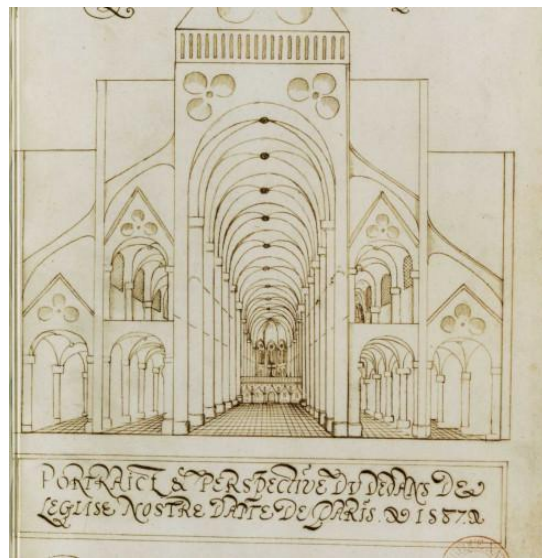 PORTRAICT & PERSPECTIVE DV DEDANS DE
LEGLISE NOSTRE DAME DE PARIS. 1587.